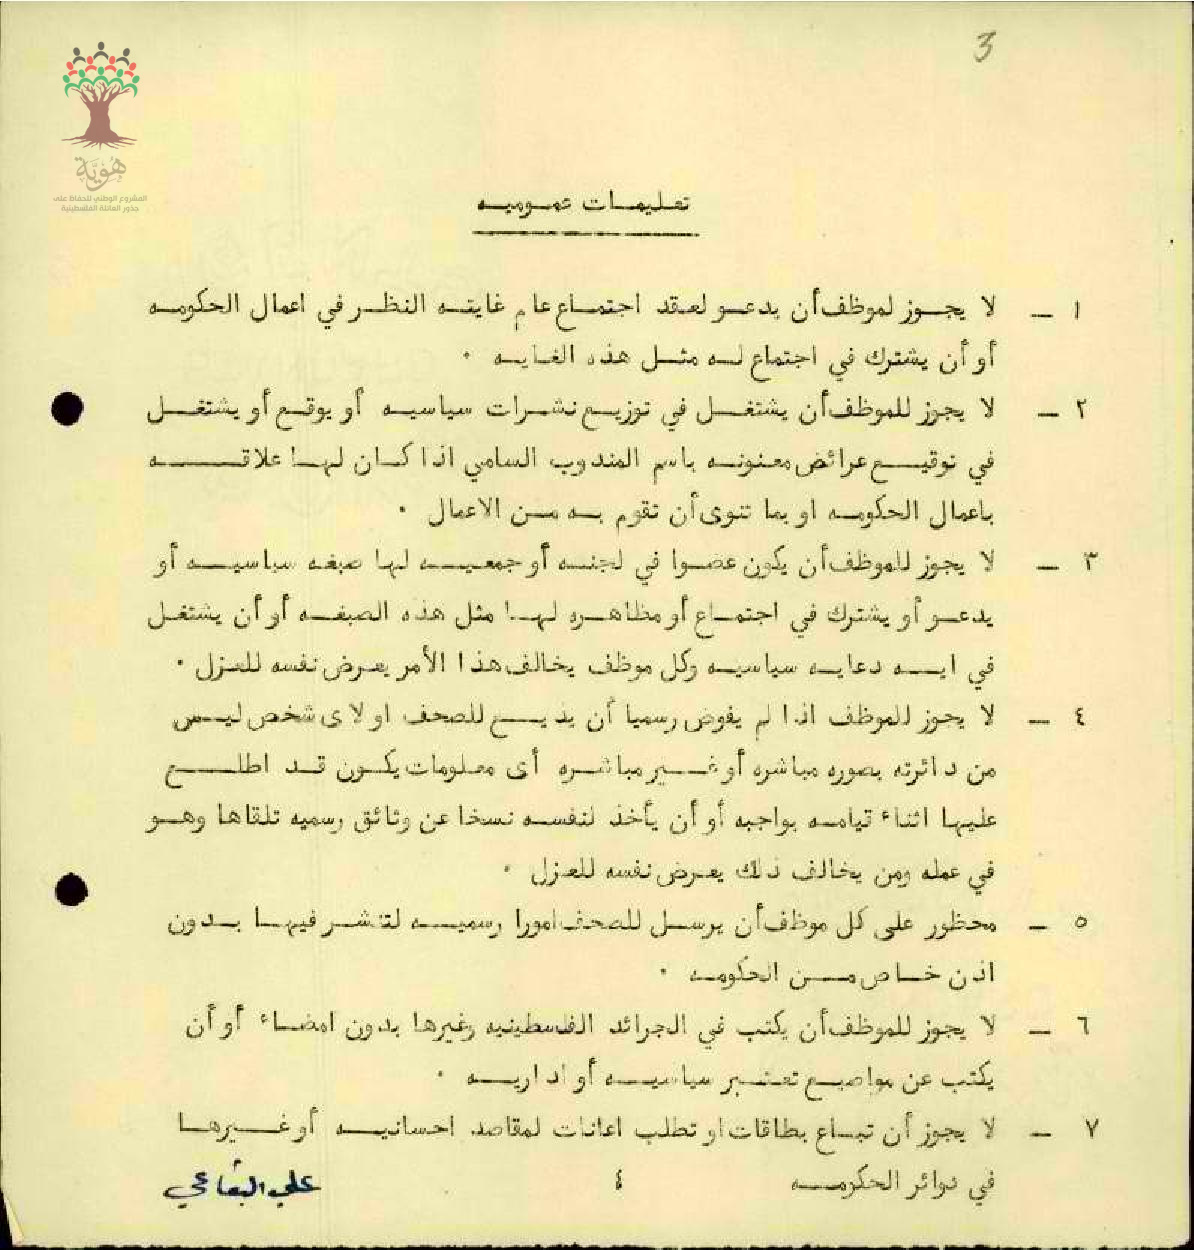 3
هُويَّة
المشروع الوطني للحفاظ على
جذور العائلة الفلسطينية
تعليمات عموميه
١ - لا يجوز لموظف أن يدعو لعقد اجتماع عام غايته النظر في اعمال الحكومه
أو أن يشترك في اجتماع له مثل هذه الغايه .
٢ - لا يجوز للموظف أن يشتغل في توزيع نشرات سياسيه أو يوقع أو يشتغل
في توقيع عرائض معنونه باسم المندوب السامي اذا كان لها علاقه
باعمال الحكومه او بما تنوى أن تقوم به من الاعمال .
٣ - لا يجوز للموظف أن يكون عضوا في لجنه أو جمعيه لها صبغه سياسيه أو
يدعو أو يشترك في اجتماع أو مظاهره لها مثل هذه الصبغه أو أن يشتغل
في ايه دعايه سياسيه وكل موظف يخالف هذا الأمر يعرض نفسه للعزل .
٤ - لا يجوز للموظف اذا لم يفوض رسميا أن يذيع للصحف او لاى شخص ليس
من دائرته بصوره مباشره أو غير مباشره أى معلومات يكون قد اطلع
عليها اثناء قيامه بواجبه أو أن يأخذ لنفسه نسخا عن وثائق رسميه تلقاها وهو
في عمله ومن يخالف ذلك يعرض نفسه للعزل .
٥ - محظور على كل موظف أن يرسل للصحف امورا رسميه لتنشر فيها بدون
اذن خاص من الحكومه .
٦ - لا يجوز للموظف أن يكتب في الجرائد الفلسطينيه وغيرها بدون امضاء أو أن
يكتب عن مواضيع تعتبر سياسيه أو اداريه .
٧ - لا يجوز أن تباع بطاقات او تطلب اعانات لمقاصد احسانيه أو غيرها
في دوائر الحكومه
٤
علي البقاعي